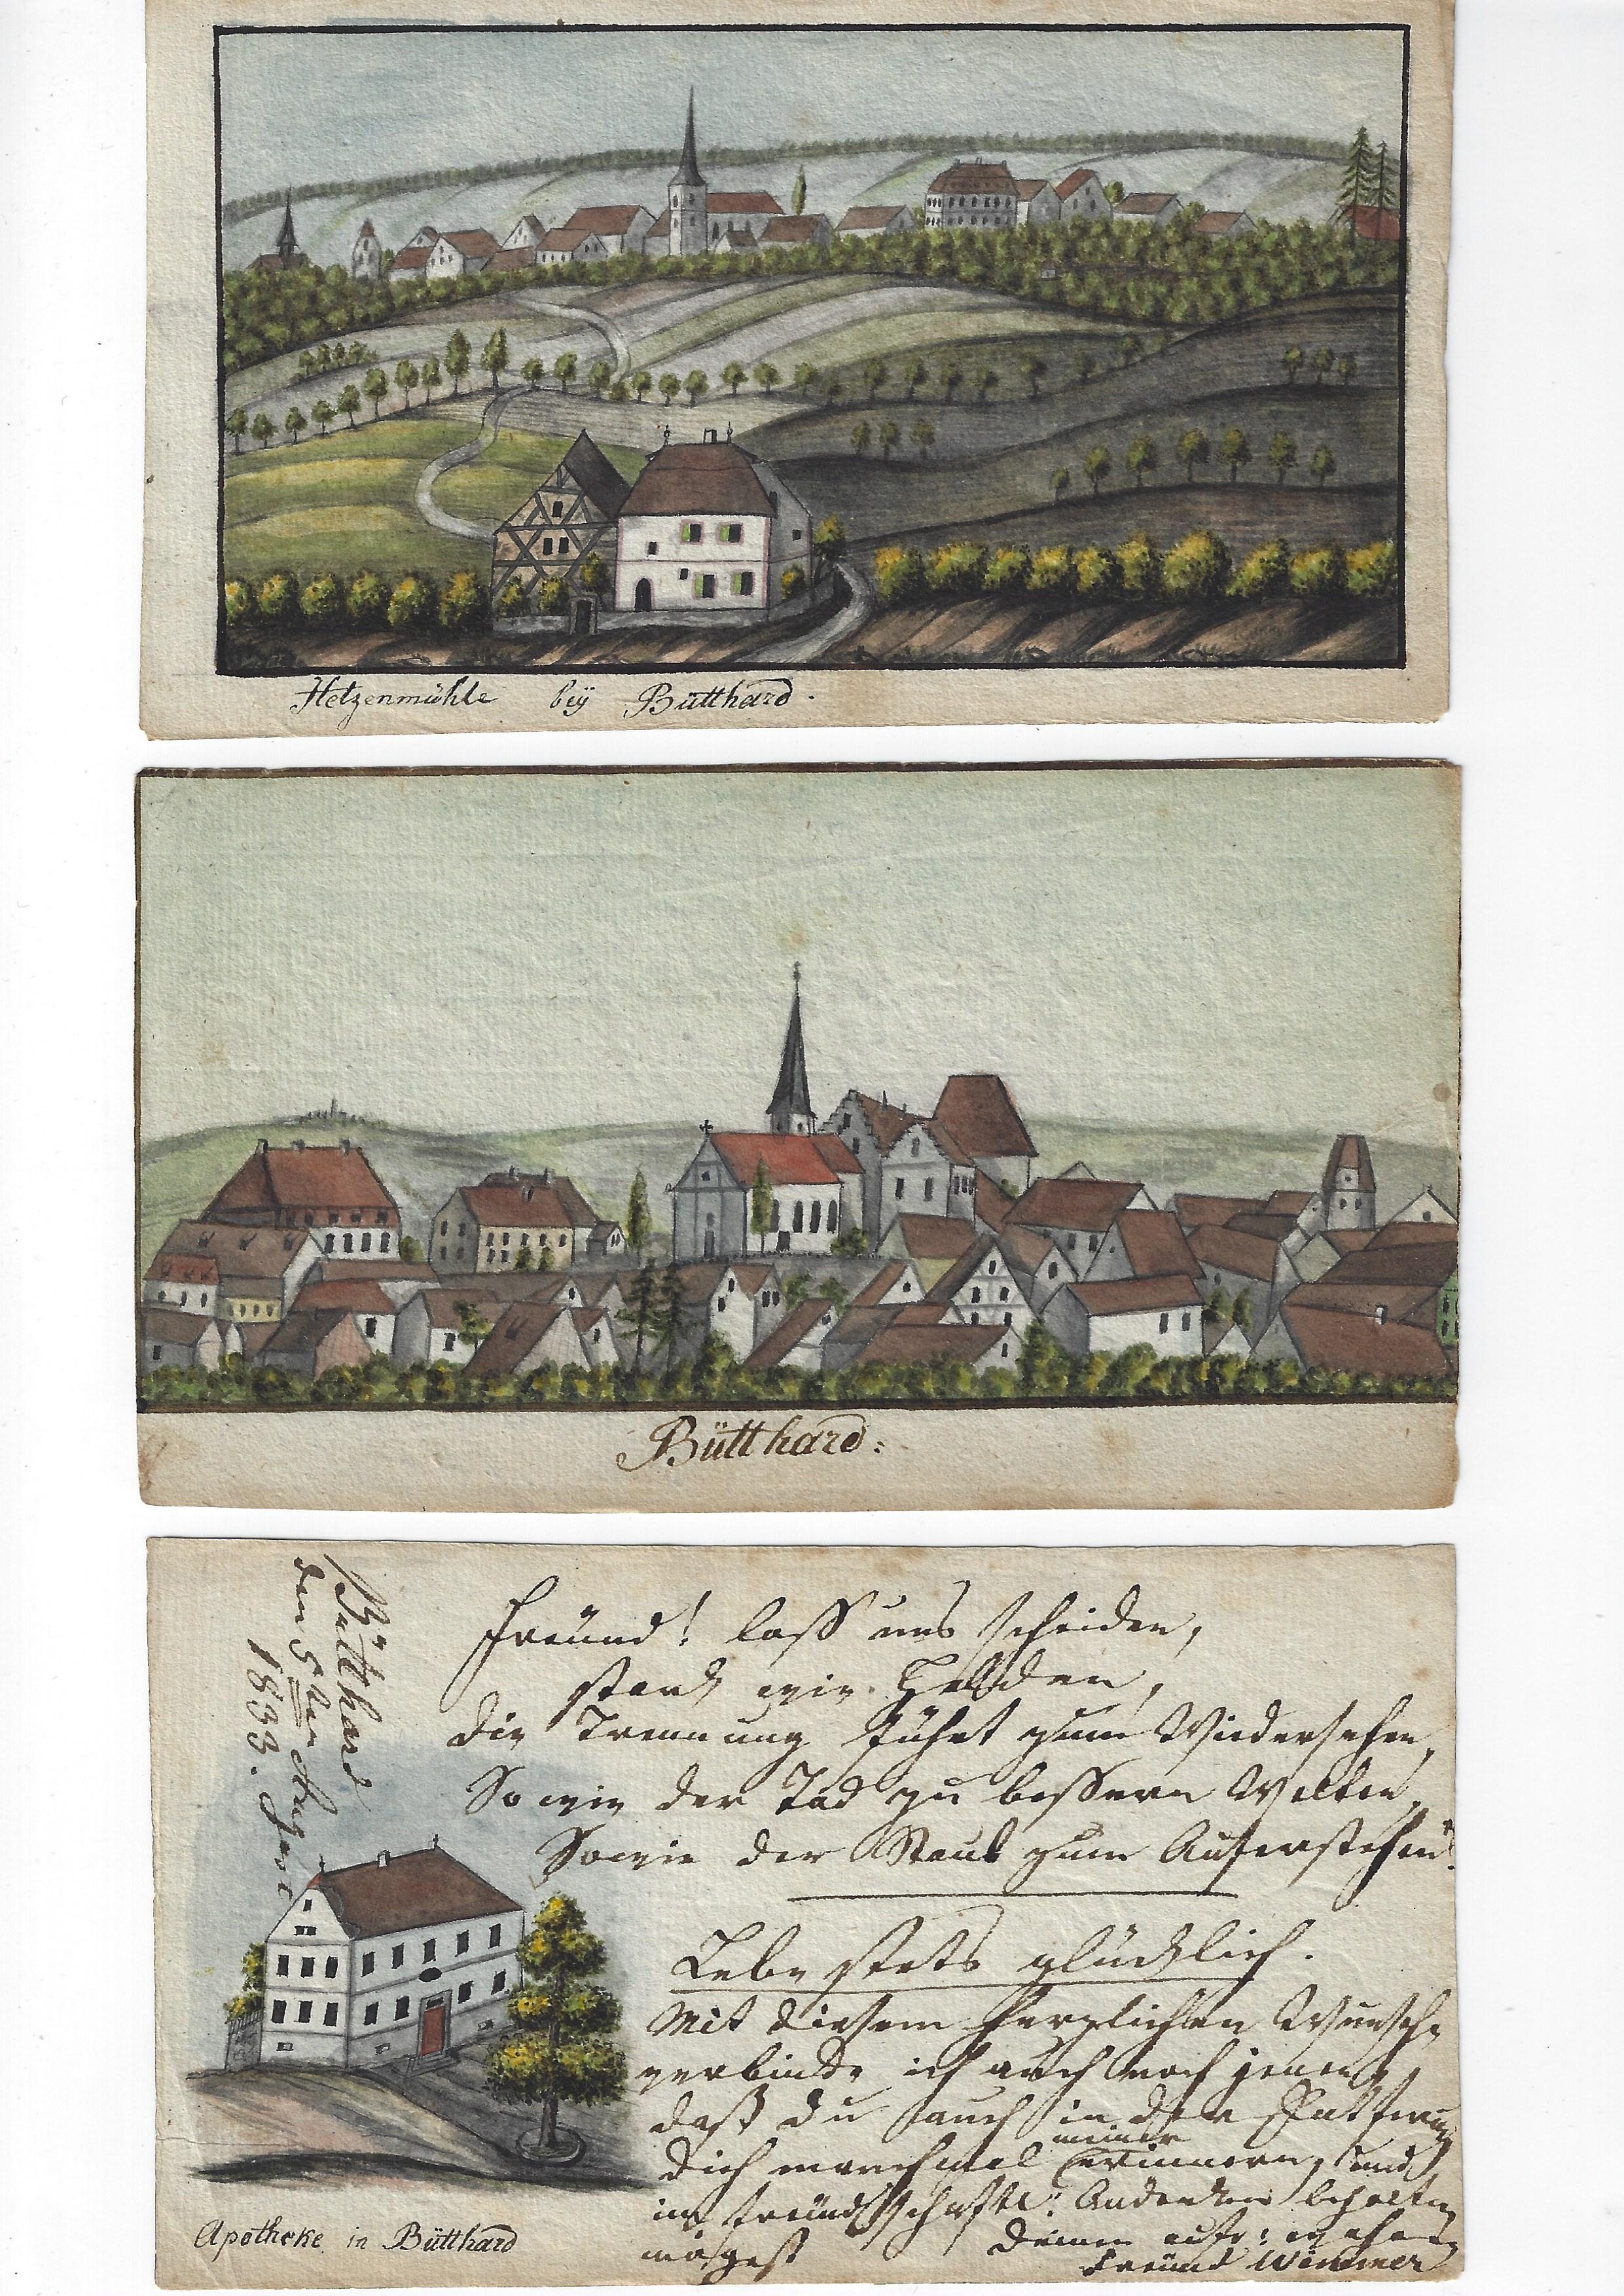 Hetzenmühle beÿ Bütthard.
Bütthard:
Bütthard
den 5ten August
1833.
Freünd! lass uns scheiden,
stark wie Helden,
die Trennung führt zum Wiedersehen,
So wie der Tod zu bessern Welten,
Sowie der Staub zum Auferstehen.
Lebe stets glücklich.
Mit diesem herzlichen Wunsche
verbinde ich auch noch jenen,
daß du auch in der Entfernung
meiner
dich manchmal erinnern, und
im freündschaftl: Andenken behalten
mögest
Deinen aufr:
Freünd Wimmer
Apotheke in Bütthard